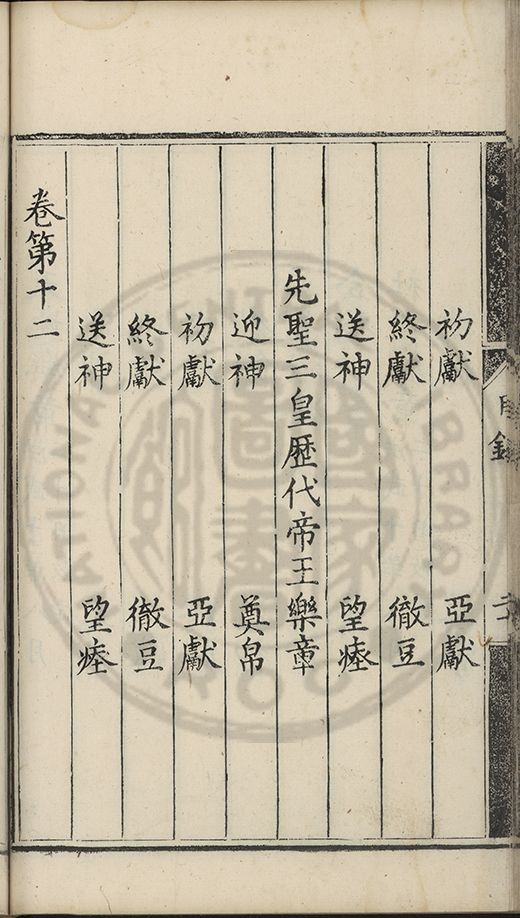 初獻 亞獻
終獻 徹豆
送神 望瘞
先聖三皇歷代帝王樂章
迎神 奠帛
初獻 亞獻
終獻 徹豆
送神 望瘞
卷第十二